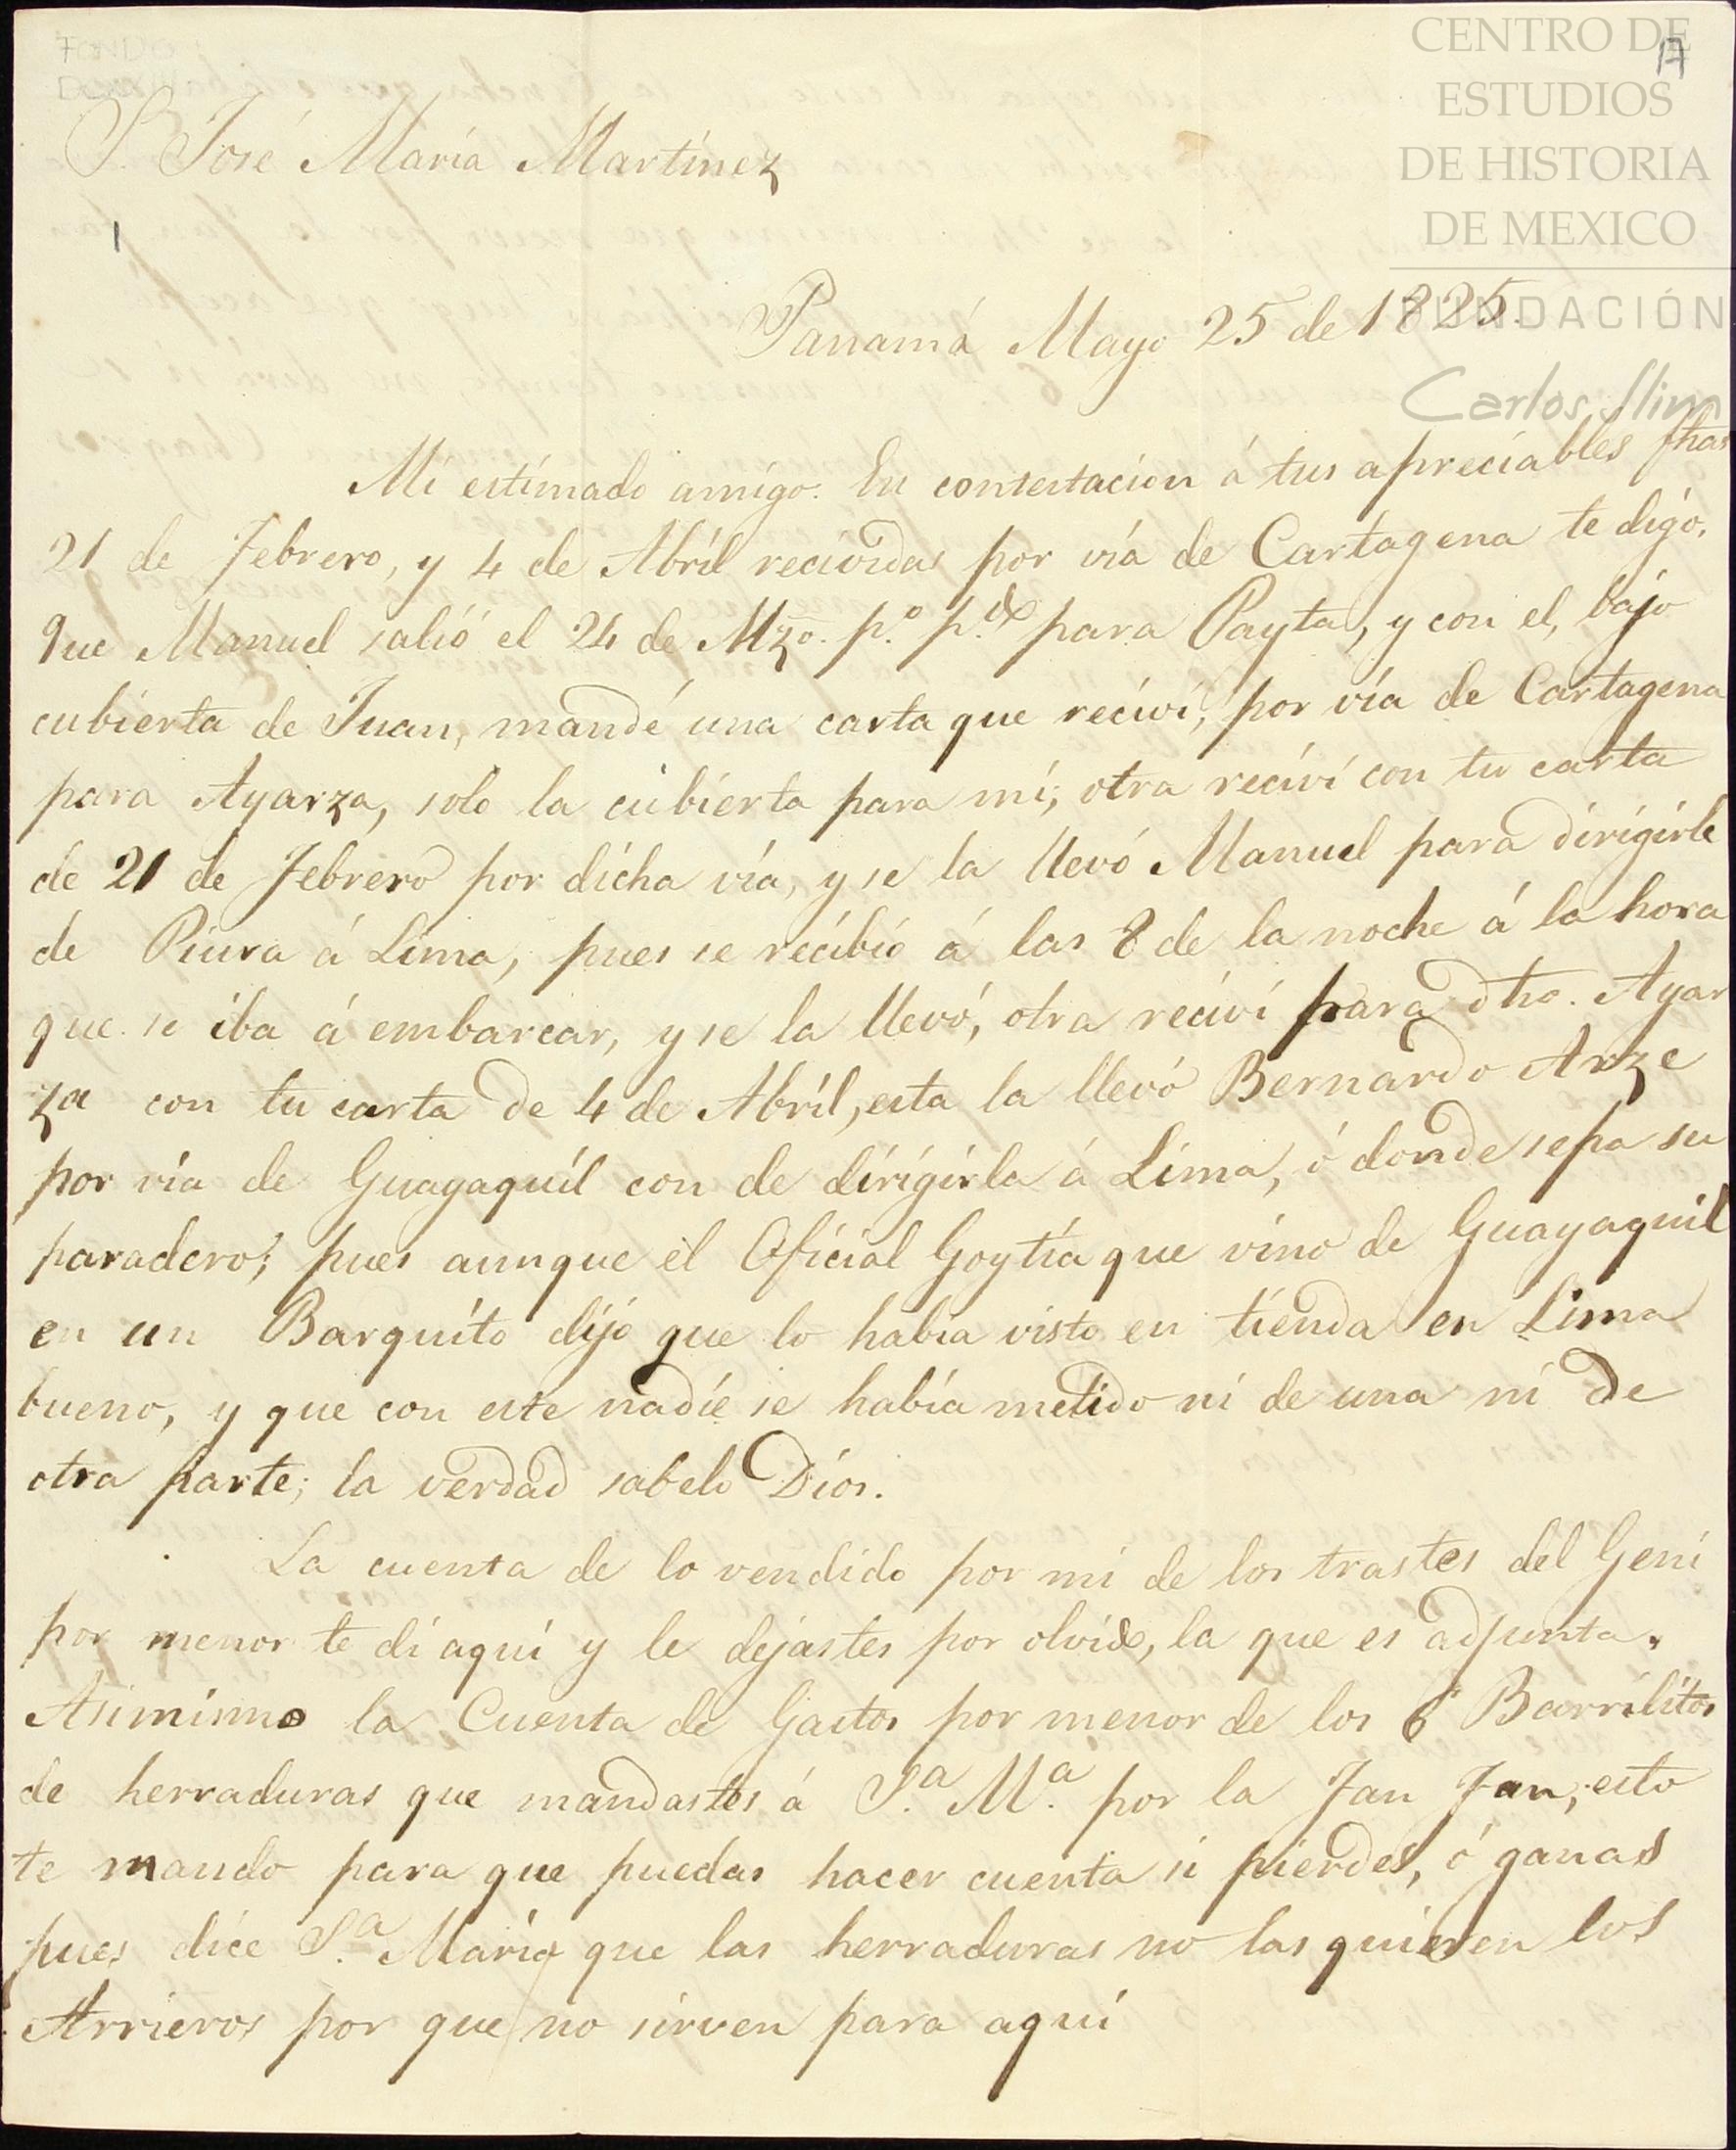 CENTRO DE
ESTUDIOS
DE HISTORIA
DE MEXICO
FUNDACIÓN
Carlos Slim
17
FONDO
S. José María Martínez
1
Panamá Mayo 25 de 1825.
Mi estimado amigo. En contestacion á tus apreciables fhas
21 de Febrero, y 4 de Abríl recividas por vía de Cartagena te digo,
que Manuel salió el 24 de Mzo. p.º p.do para Payta, y con el, bajo
cubierta de Juan, mandé una carta que recivi, por vía de Cartagena
para Ayarza, solo la cubierta para mí; otra recivi con tu carta
de 21 de Febrero por dicha vía, y se la llevó Manuel para dirigirle
de Piura á Lima, pues se recibió á las 8 de la noche á la hora
que se iba á embarcar, y se la llevó, otra recivi para dho. Ayar
za con tu carta de 4 de Abríl, esta la llevó Bernardo Arze
por vía de Guayaquíl con de dirigirla á Lima, ó donde sepa su
paradero; pues aunque el Oficial Goytía que vino de Guayaquil
en un Barquíto dijo que lo había visto en tienda en Lima
bueno, y que con este nadíe se había metido ni de una ni de
otra parte; la verdad sabelo Dios.
La cuenta de lo vendido por mi de los trastes del Geni
por menor te di aquí y le dejastes por olvido, la que es adjunta.
Asimismo la Cuenta de Gastos por menor de los 6 Barrilítos
de herraduras que mandastes á S.a M.a por la Jan Jan, esto
te mando para que puedas hacer cuenta si pierdes, ó ganas
pues dice S.a María que las herraduras no las quieren los
Arrieros por que no sirven para aquí